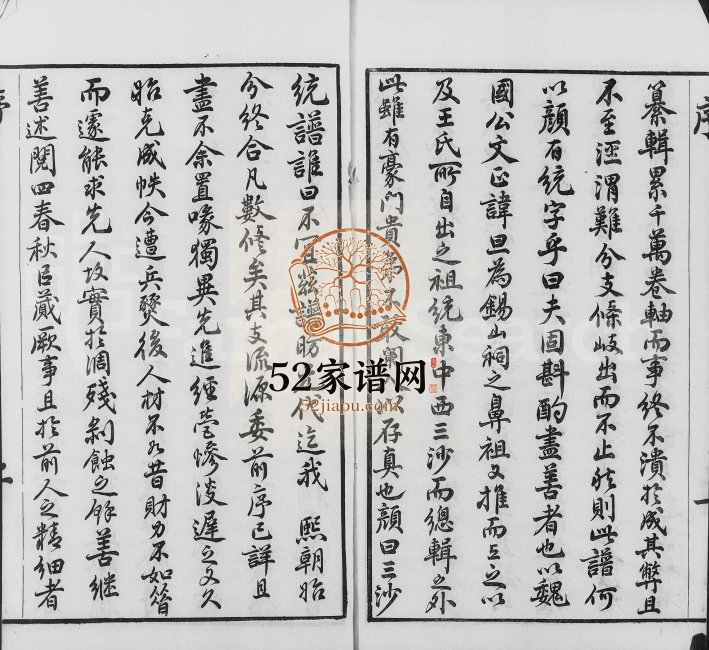 序
纂輯累千萬卷軸而事終不潰於成其弊且
不至涇渭難分支條岐出而不止然則此譜何
以顏有統字乎曰夫固斟酌盡善者也以魏
國公文正諱旦為錫山祠之鼻祖又推而上之以
及王氏所自出之祖統東中西三沙而總輯之外
此雖有豪門貴 不敢 存真也顏曰三沙
統譜誰曰不宜茲譜昉 代迄我 熙朝始
分終合凡數修矣其支流源委前序已詳且
盡不余置喙獨異先進經營慘淡遲之又久
始克成帙今遭兵燹後人材不如昔財力不如昔
而遽能求先人故實於凋殘剝蝕之餘善繼
善述閱四春秋臣蕆厥事且於前人之精細者
序
一
二
52家谱网
52jiapu.com